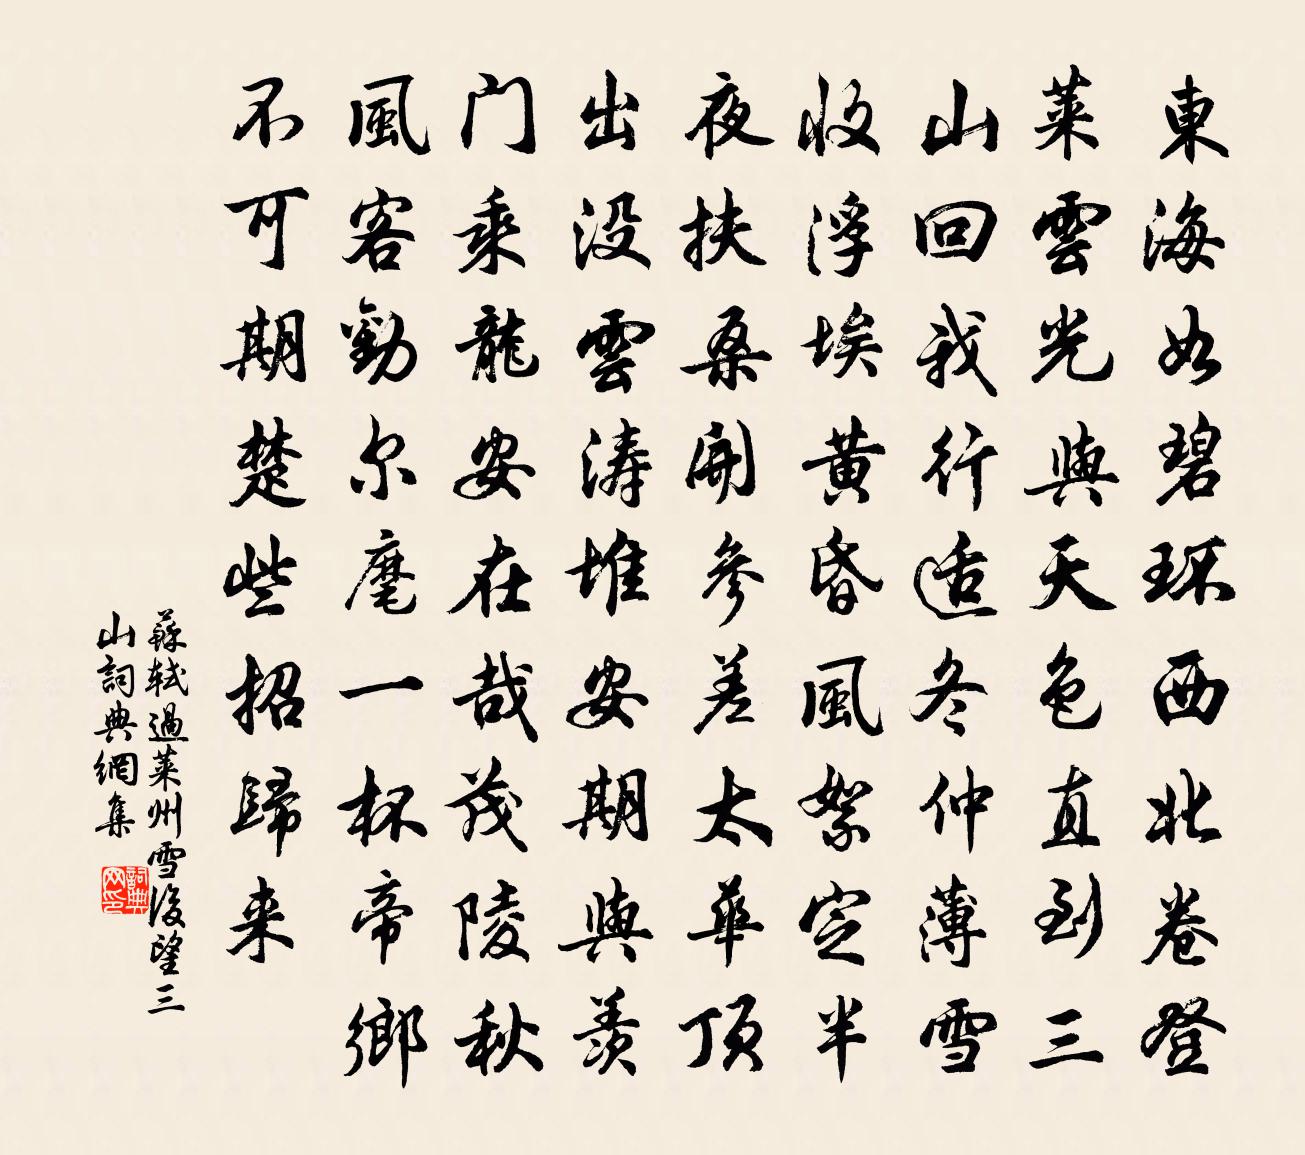 東海如碧环西北卷登
萊雲光與天色直到三
山回我行适冬仲薄雪
收浮埃黄昏風絮定半
夜扶桑開參差太華頂
出没雲涛堆安期與羨
门乘龍安在哉茂陵秋
風客勸尔麾一杯帝鄉
不可期楚些招歸来
蘇軾過萊州雪後望三
山詞典網集
詞典
网印